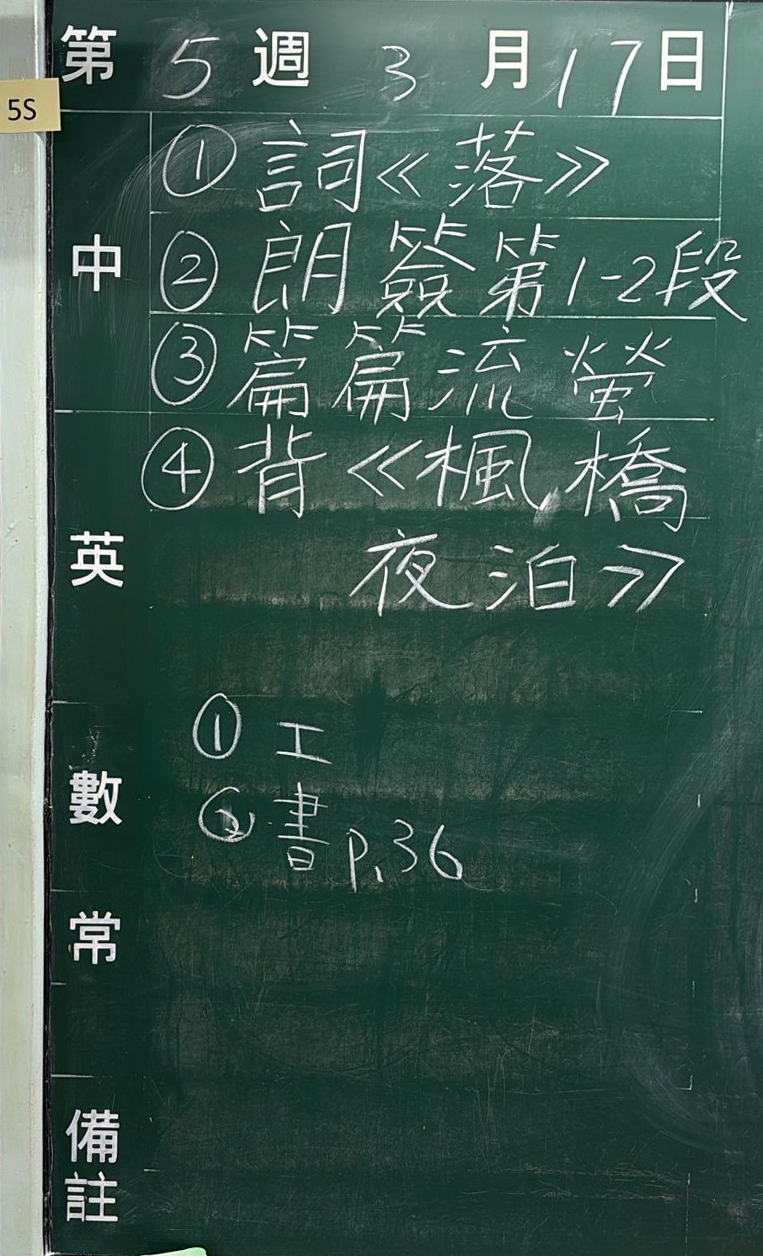 第5週3月17日
5S
中
①詞《落》
②朗簽第1-2段
③篇篇流螢
英
④背《楓橋
夜泊》
數
①工
②書p.36
常
備註